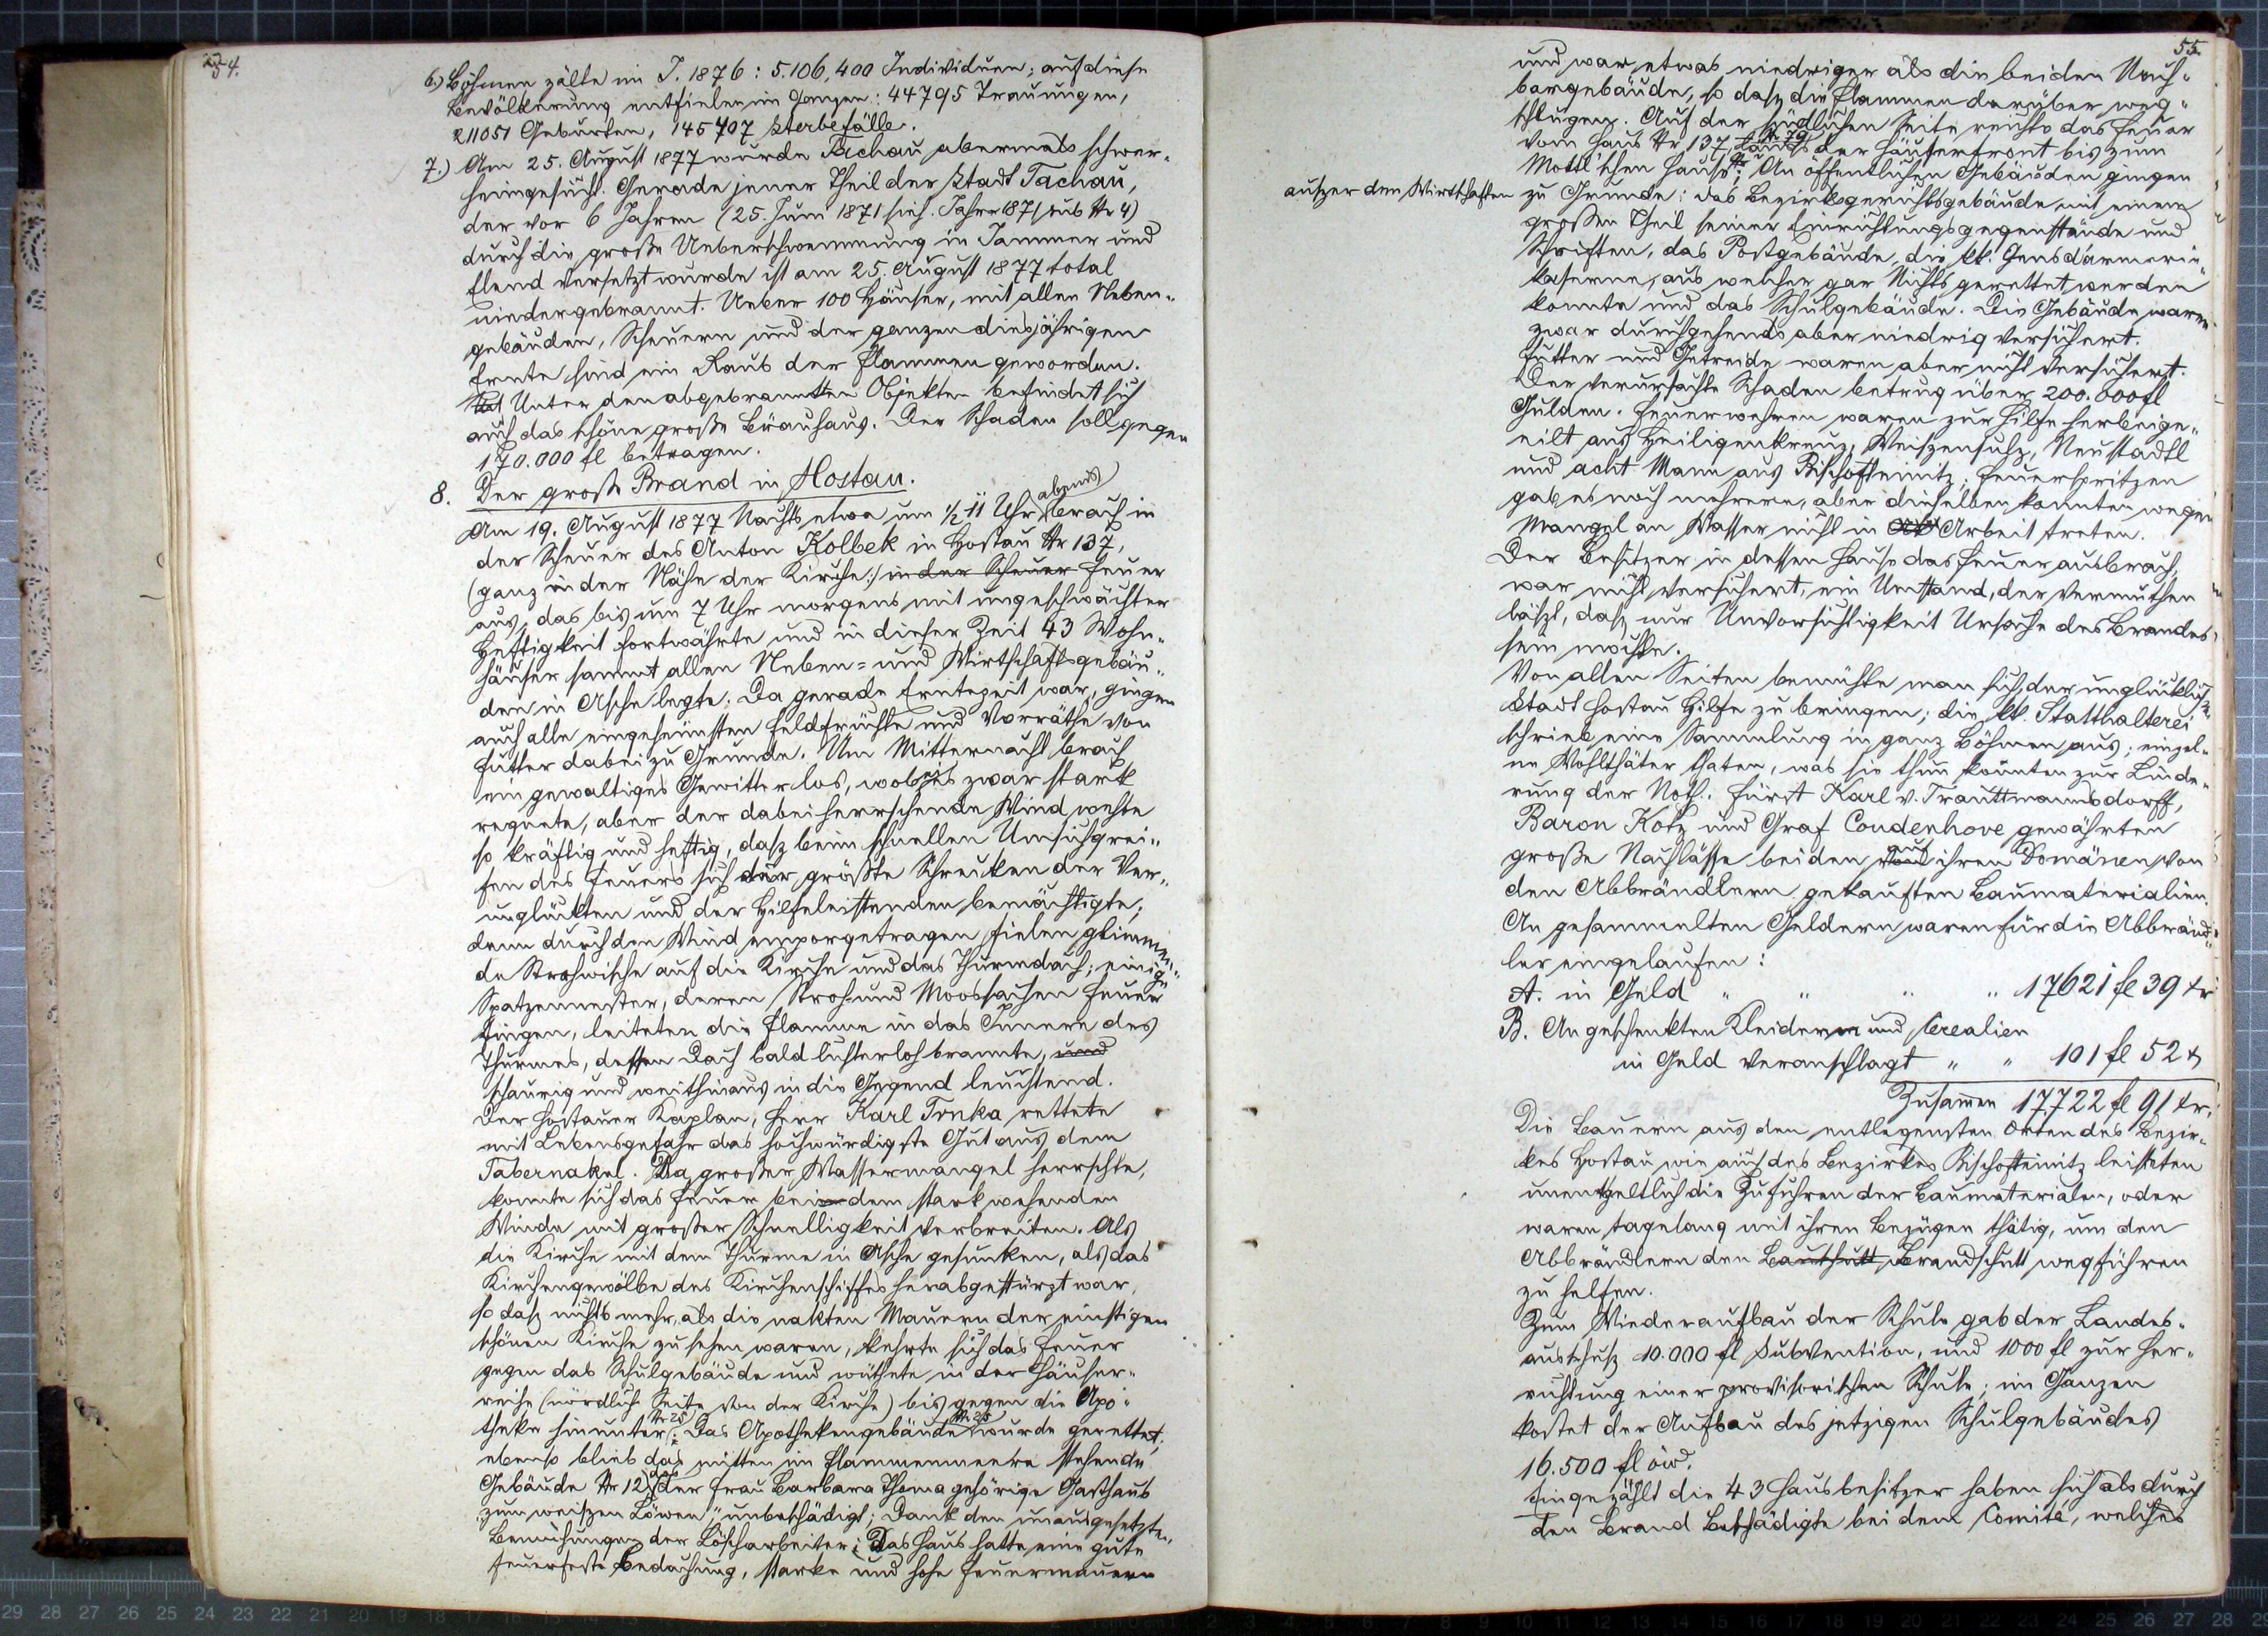 54.
6.) Böhmen zälte im J. 1876 : 5.106,400 Individuen; auf diese
Bevölkerung entfielen im Ganzen : 44795 Trauungen,
211051 Geburten, 145707 Sterbefälle.
7.) Am 25. August 1877 wurde Tachau abermals schwer
heimgesucht. Gerade jener Theil der Stadt Tachau,
der vor 6 Jahren (25. Juni 1871 sieh. Jahr 1871 sub Nr 4)
durch die große Ueberschwemmung in Jammer und
Elend versetzt wurde ist am 25. August 1877 total
niedergebrannt. Ueber 100 Häuser, mit allen Neben-
gebäuden, Scheuern und der ganzen diesjährigen
Ernte sind ein Raub der Flammen geworden.
Unter den abgebrannten Objekten befindet sich
auch das schöne große Bräuhaus. Der Schaden soll gegen
170.000 fl betragen.
8. Der große Brand in Hostau.
Am 19. August 1877 Nachts etwa um ½ 11 Uhr abends brach in
der Scheuer des Anton Kolbek in Hostau Nr 137,
(ganz in der Nähe der Kirche:) in der Scheuer Feuer
aus, das bis um 7 Uhr morgens mit ungeschwächter
Heftigkeit fortwährte und in dieser Zeit 43 Wohn-
häuser sammt allen Neben= und Wirtschaftsgebäu-
den in Asche legte. Da gerade Erntezeit war, gingen
auch alle eingeheimsten Feldfrüchte und Vorräthe von
Futter dabei zu Grunde. Um Mitternacht brach
ein gewaltiges Gewitter los, wobei es zwar stark
regnete, aber der dabei herrschende Wind wehte
so kräftig und heftig, dasz beim schnellen Umsichgrei-
fen des Feuers sich der größte Schrecken der Ver-
unglückten und der Hilfeleistenden bemächtigte;
denn durch den Wind emporgetragen fielen glimmen-
de Strohwische auf die Kirche und das Thurmdach; einige
Spatzennester, deren Stroh- und Moossachen Feuer
fingen, leiteten die Flamme in das Innere des
Thurmes, dessen Dach bald lichterloh brannte, und
schaurig und weithinaus in die Gegend leuchtend.
Der Hostauer Kaplan, Herr Karl Trnka rettete
mit Lebensgefahr das hochwürdigste Gut aus dem
Tabernakel. Da großer Wassermangel herrschte,
konnte sich das Feuer bei dem stark wehenden
Winde mit großer Schnelligkeit verbreiten. Als
die Kirche mit dem Thurme in Asche gesunken, als das
Kirchengewölbe des Kirchenschiffes herabgestürzt war,
so dasz nichts mehr, als die nakten Mauern der einstigen
schönen Kirche zu sehen waren, kehrte sich das Feuer
gegen das Schulgebäude und wüthete in der Häuser-
reihe (nördliche Seite von der Kirche) bis gegen die Apo-
theke hinunter Nr 25; Das Apothekengebäude Nr 25 wurde gerettet,
ebenso blieb das mitten im Flammenmeere stehende
Gebäude Nr 12) das der Frau Barbara Thoma gehörige Gasthaus
"zum weiszen Löwen", unbeschädigt; Dank den unausgesetzten
Bemühungen der Löscharbeiter; Das Haus hatte eine gute
feuerfeste Bedachung, starke und hohe Feuermauern
55.
und war etwas niedriger als die beiden Nach-
bargebäude, so dasz die Flammen darüber weg-
schlugen. Auf der südlichen Seite reichte das Feuer
vom Haus Nr 137 längs der Häuserfront bis zum
Mottl'schen Hause Nr 79; An öffentlichen Gebäuden gingen
auszer den Wirtschaften zu Grunde: das Bezirksgerichtsgebäude mit einem
großen Theil seiner Einrichtungsgegenstände und
Schriften, das Postgebäude, die kk. Gensdärmerie-
kaserne, aus welcher gar Nichts gerettet werden
konnte und das Schulgebäude. Die Gebäude waren
zwar durchgehends aber niedrig versichert.
Futter und Getreide waren aber nicht versichert.
Der verursachte Schaden betrug über 200.000 fl
Gulden. Feuerwehren waren zur Hilfe herbeige-
eilt aus Heiligenkreuz, Weiszensulz, Neustadtl
und acht Mann aus Bischofteinitz; Feuerspritzen
gab es noch mehrere, aber dieselben konnten wegen
Mangel an Wasser nicht in Arbeit treten.
Der Besitzer in dessen Hause das Feuer ausbrach,
war nicht versichert, ein Umstand, der vermuthen
läszt, dasz nur Unvorsichtigkeit Ursache des Brandes
sein mochte.
Von allen Seiten bemühte man sich, der unglücklichen
Stadt Hostau Hilfe zu bringen; die kk. Statthalterei
schrieb eine Sammlung in ganz Böhmen aus; einzel-
ne Wohlthäter thaten, was sie thun konnten zur Linde-
rung der Noth. Fürst Karl v. Trauttmannsdorff,
Baron Kotz und Graf Coudenhove gewährten
große Nachlässe bei den auf ihren Domänen von
den Abbrändlern gekauften Baumaterialien.
An gesammelten Geldern waren für die Abbränd-
ler eingelaufen:
A. in Geld " " " " 17621 fl 39 kr
B. An geschenkten Kleidern und Cerealien
in Geld veranschlagt " " 101 fl 52 kr
Zusamen 17722 fl 91 kr.
Die Bauern aus den entlegensten Orten des Bezir-
kes Hostau wie auch des Bezirkes Bischofteinitz leisteten
unentgeltlich die Zufuhren der Baumaterialen, oder
waren tagelang mit ihren Bezügen thätig, um den
Abbrändlern den Bauschutt Brandschutt wegführen
zu helfen.
Zum Wiederaufbau der Schule gab der Landes-
ausschusz 10.000 fl Subvention, und 1000 fl zur Her-
richtung einer provisorischen Schule; im Ganzen
kostet der Aufbau des jetzigen Schulgebäudes
16.500 fl öw.
Eingezählt die 43 Hausbesitzer haben sich als durch
den Brand Beschädigte bei dem Comité, welches